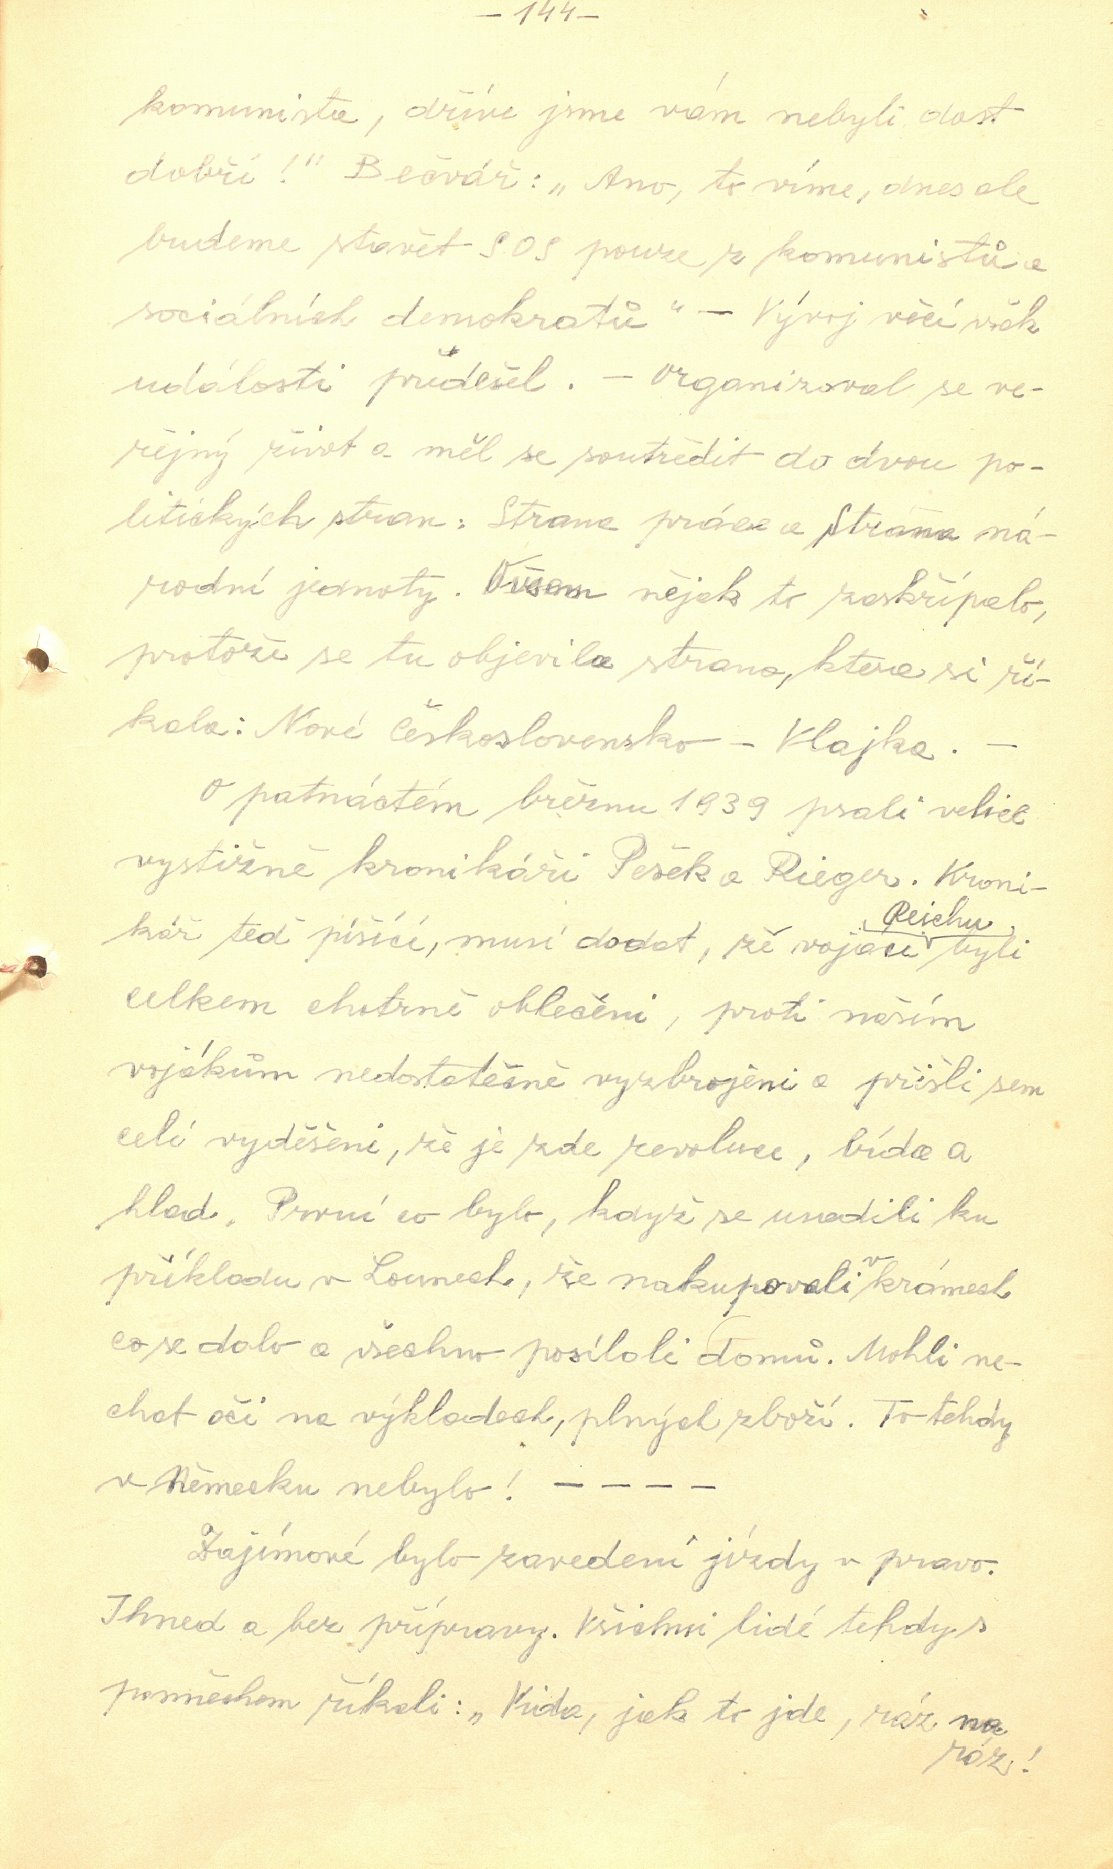 - 144 -
komunista, dříve jsme vám nebyli dost
dobří!" Bečvář: „Ano, to víme, dnes ale
budeme stavět SOS pouze z komunistů a
sociálních demokratů" - Vývoj věcí však
události předešel. - Organizoval se ve-
řejný život a měl se soutředit do dvou po-
litických stran: Strana práce a Strana ná-
rodní jednoty. Ovšem nějak to zaskřípalo,
protože se tu objevila strana, která si ří-
kala: Nové Československo - Vlajka. -
O patnáctém březnu 1939 psali velice
vystižně kronikáři Pešek a Rieger. Kroni-
kář teď píšící, musí dodat, že vojáci Reichu byli
celkem chatrně oblečeni, proti našim
vojákům nedostatečně vyzbrojeni a přišli sem
celí vyděšeni, že je zde revoluce, bída a
hlad. První co bylo, když se usadili ku
příkladu v Lounech, že nakupovali v krámech
co se dalo a všechno posílali domů. Mohli ne-
chat oči na výkladech, plných zboží. To tehdy
v Německu nebylo! - - - -
Zajímavé bylo zavedení jízdy v pravo.
Ihned a bez přípravy. Všichni lidé tehdy s
posměchem říkali: „Vida, jak to jde, ráz na
ráz!